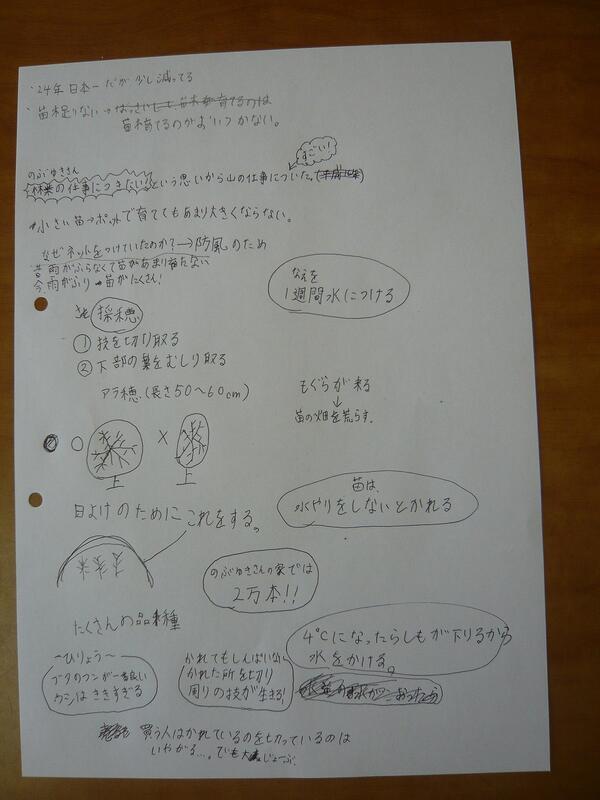 ・24年日本一だが少し減ってる
・苗木足りない→
苗木育てるのがおいつかない。
すごい!
のぶゆきさん
林業の仕事につきたい!という思いから山の仕事についた。
小さい苗→ポットで育ててもあまり大きくならない。
なぜネットをつけていたのか?→防風のため
昔 雨がふらなくて苗があまり育たない
今 雨がふり→苗がたくさん!
なえを
1週間水につける
採穂
① 枝を切り取る
② 下部の葉をむしり取る
アラ穂(長さ50〜60cm)
もぐらが来る
↓
苗の畑を荒らす。
○ ×
上 上
苗は、
水やりをしないとかれる
日よけのためにこれをする。
のぶゆきさんの家では
2万本!!
たくさんの品種
4℃になったらしもが下りるから
水をかける。
〜ひりょう〜
ブタのフンが一番良い
ウシはききすぎる
かれてもしんぱいない
かれた所を切り
周りの技が生きる!
買う人はかれているのを切っているのは
いやがる…。でも大じょーぶ。